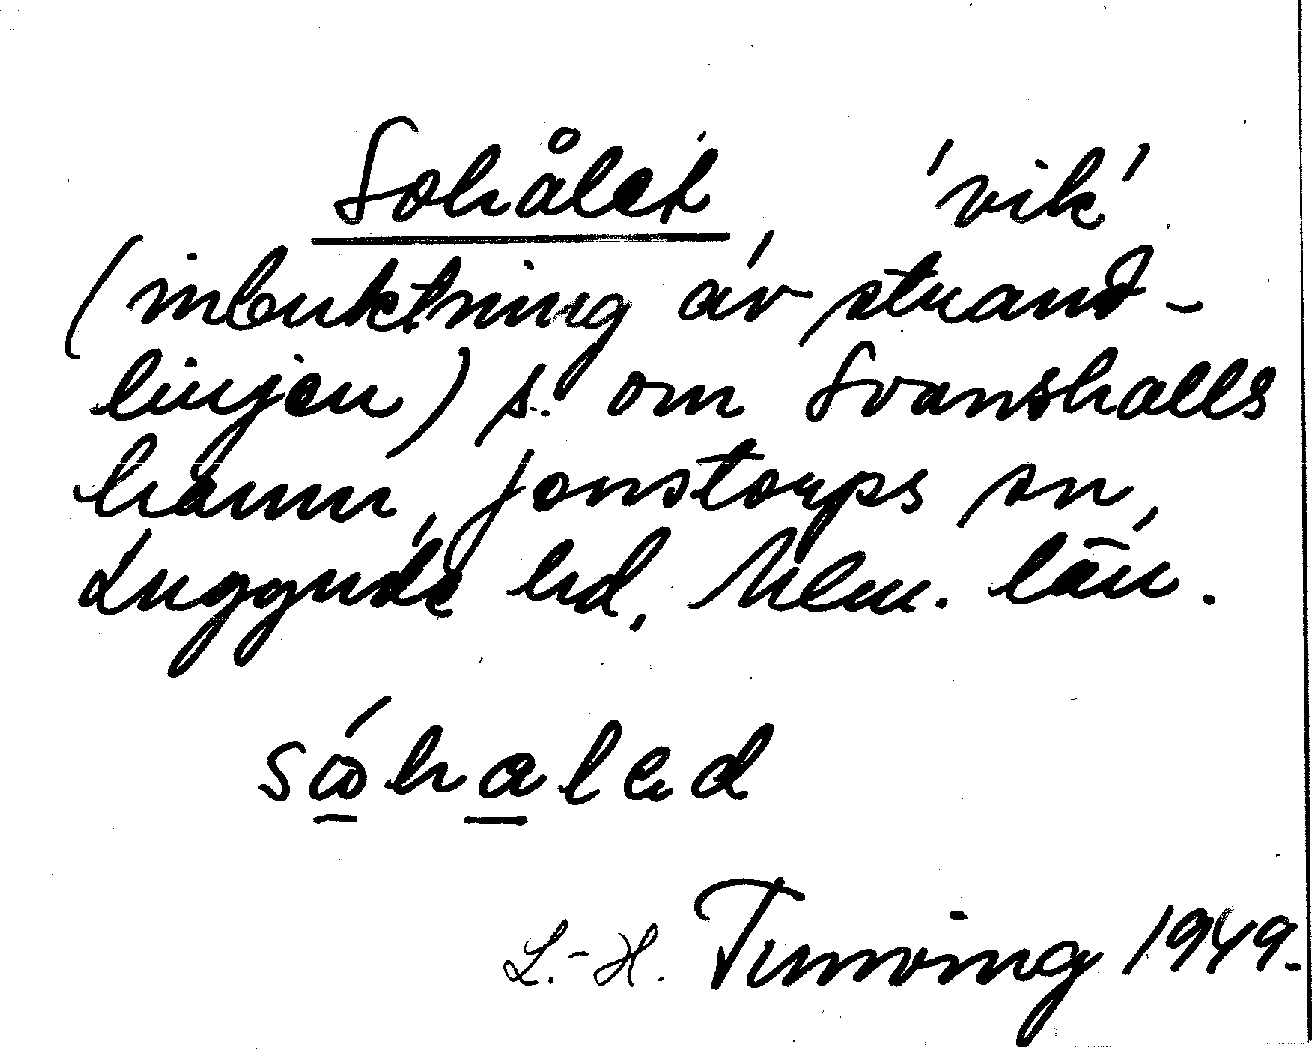 Sohålet 'vik'
(inbuktning av strand-
linjen) s. om Svanshalls
hamn, Jonstorps sn,
Luggude hd, Mlm. län.
sóhaled
L.-H. Tunving 1949.